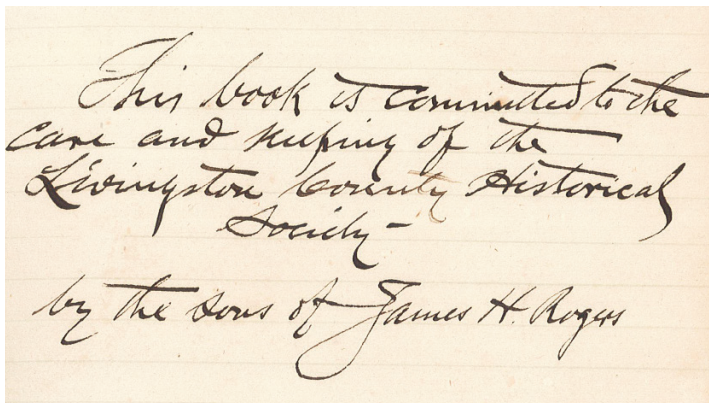 This book is committed to the
care and keeping of the
Livingston County Historical
Society –
by the sons of James H. Rogers